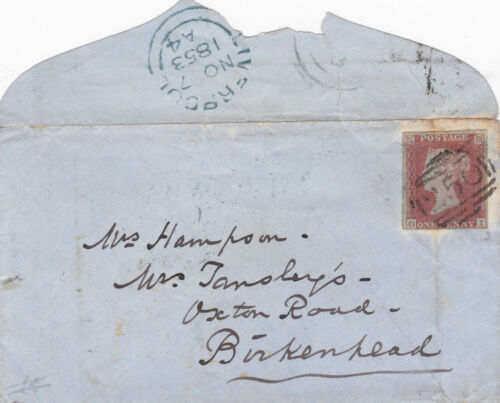 LIVERPOOL
A4
1853
NO
7
POSTAGE
ONE PENNY
O I
Mrs Hampson -
Mrs Tansley's -
Oxton Road -
Birkenhead